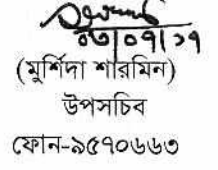 ০৩|০৭|১৭
(মুর্শিদা শারমিন)
উপসচিব
ফোন-৯৫৭০৬৬৩